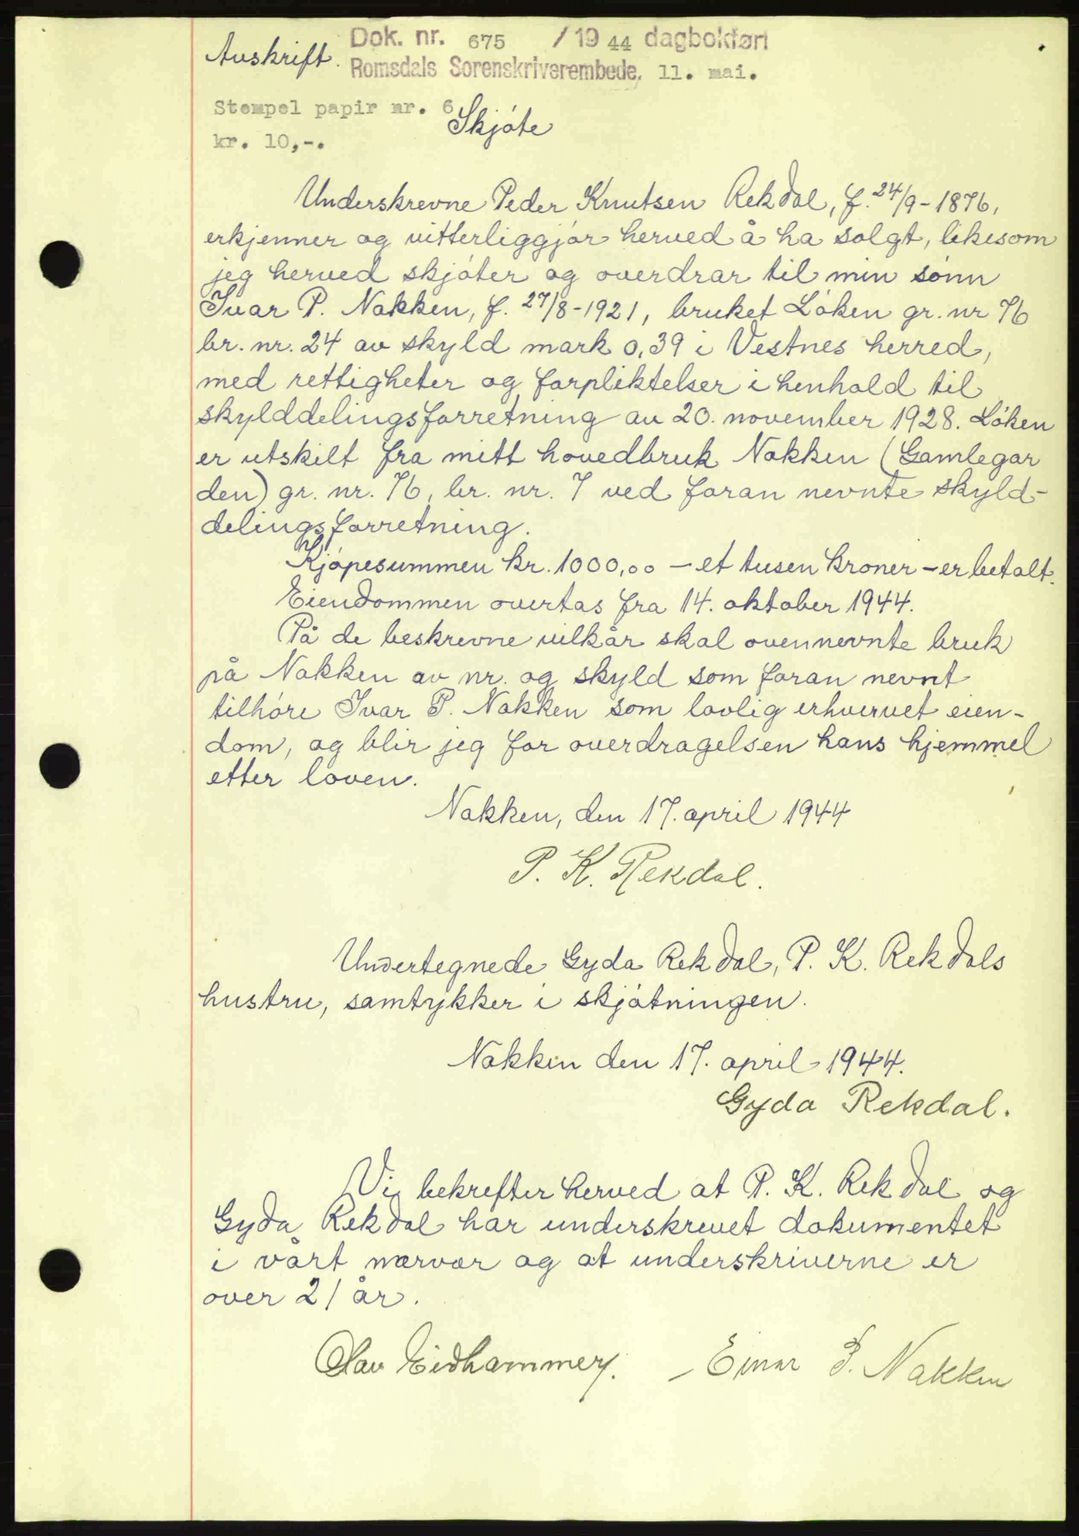 Avskrift.
Dok. nr. 675 / 19 44 dagbokført
Romsdals Sorenskriverembede, 11. mai.
Stempel papir nr. 6
kr. 10,-.
Skjóte
Underskrevne Peder Knutsen Rekdal, f. 24/9-1876,
erkjenner og vitterliggjór herved å ha solgt, likesom
jeg herved skjóter og overdrar til min sónn
Ivar P. Nakken, f. 27/8-1921, bruket Lóken gr. nr 76
br. nr. 24 av skyld mark 0,39 i Vestnes herred,
med rettigheter og forpliktelser i henhold til
skylddelingsforretning av 20. november 1928. Lóken
er utskilt fra mitt hovedbruk Nakken (Gamlegar
den) gr. nr. 76, br. nr. 7 ved foran nevnte skyld-
delingsforretning.
Kjópesummen kr. 1000,00 — et tusen kroner - er betalt.
Eiendommen overtas fra 14. oktober 1944.
På de beskrevne vilkår skal ovennevnte bruk
på Nakken av nr. og skyld som foran nevnt
tilhóre Ivar P. Nakken som lovlig erhvervet eien-
dom, og blir jeg for overdragelsen hans hjemmel
etter loven.
Nakken, den 17. april 1944
P. K. Rekdal.
Undertegnede Gyda Rekdal, P. K. Rekdals
hustru, samtykker i skjótningen.
Nakken den 17. april 1944.
Gyda Rekdal.
Vi bekrefter herved at P. K. Rekdal og
Gyda Rekdal har underskrevet dokumentet
i vårt nærvær og at underskriverne er
over 21 år.
Olav Eidhammer. Einar P. Nakken